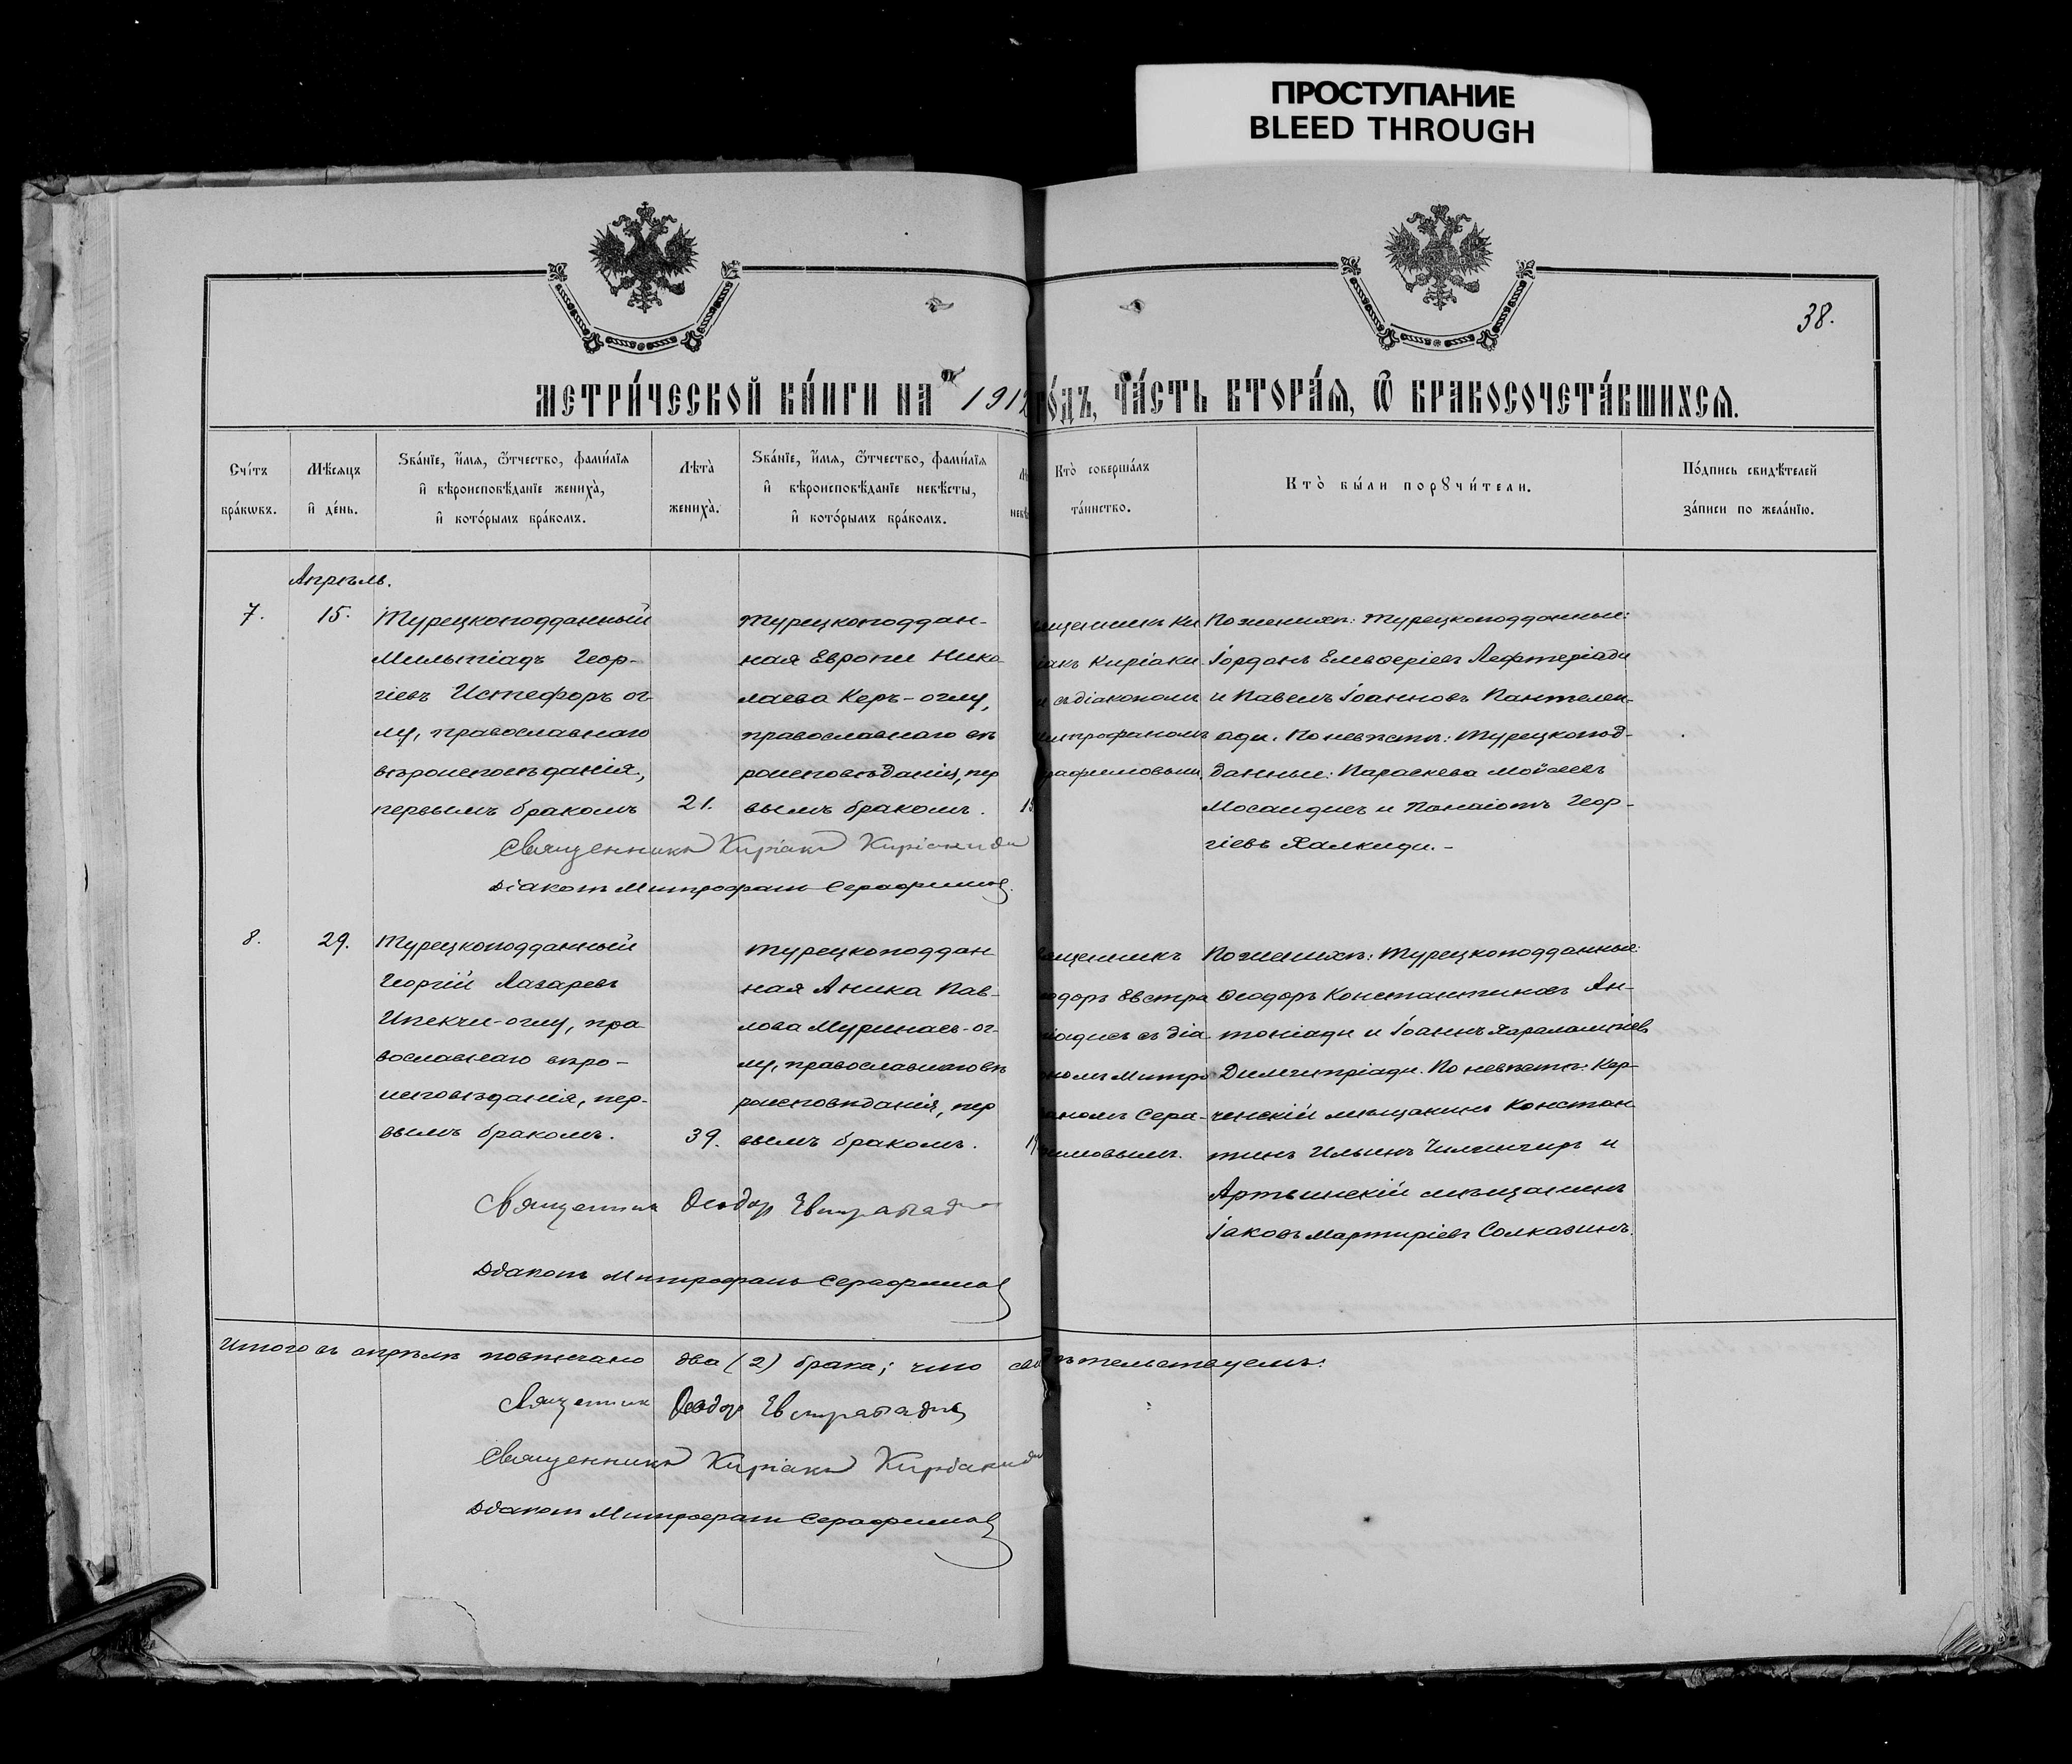 ПРОСТУПАНИЕ
BLEED THROUGH
38.
МЕТРИ́ЧЕСКОЙ КНИ́ГИ НА 191 ГО́ДЪ, ЧА́СТЬ ВТОРА́Я, Ѿ БРАКОСОЧЕТА́ВШИХСЯ.
Сче́тъ бра́кѡвъ.
Мѣ́сяцъ и де́нь.
Зва́нїе, и҆́мя, ѻ҆́тчество, фами́лїя и҆ вѣроисповѣ́данїе жениха̀, и҆ кото́рымъ бра́комъ.
Лѣта̀ жениха̀.
Зва́нїе, и҆́мя, ѻ҆́тчество, фами́лїя и҆ вѣроисповѣ́данїе невѣ́сты, и҆ кото́рымъ бра́комъ.
Кто̀ соверша́лъ та́инство.
Кто̀ бы́ли порꙋчи́тели.
По́дпись свидѣ́телей за́писи по жела́нїю.
Апрѣль.
7.
15.
Турецкоподданный
Мильтіадъ Геор-
гіевъ Истефоръ ог-
лу, православнаго
вѣроисповѣданія,
первымъ бракомъ
21.
Турецкоподдан-
ная Европи Нико-
лаева Керъ-оглу,
православнаго вѣ
роисповѣданія, пер
вымъ бракомъ.
щенникъ Ки
іакъ Киріаки
съ діакономъ
итрофаномъ
рафимовымъ.
По женихѣ: Турецкоподданные:
Іорданъ Елевѳеріевъ Лефтеріади
и Павелъ Іоанновъ Пантеле-
ади. По невѣстѣ: Турецкопод-
данные: Параскева Мойсеевъ
и Панаіотъ Геор-
гіевъ Халкиди.-
Священникъ Киріакъ Киріакиди
Діаконъ Митрофанъ Серафимовъ.
8.
29.
Турецкоподданный
Георгій Лазаревъ
Ипекчи-оглу, пра
вославнаго вѣро-
исповѣданія, пер-
вымъ бракомъ.
39.
Турецкоподдан
ная Аника Пав-
лова Муринаев-ог-
лу, православнаго вѣ
роисповѣданія, пер
вымъ бракомъ.
щенникъ
одоръ Евстра
іадисъ съ діа
номъ Митро
аномъ Сера-
имовымъ.
По женихѣ: Турецкоподданные:
Ѳеодоръ Константиновъ Ан-
тоніади и Іоаннъ Харалампіевъ
Димитріади. По невѣстѣ: Кер-
ченскій мѣщанинъ Констан
тинъ Ильинъ Чилингиръ и
Артвинскій мѣщанинъ
Іаковъ Мартиріевъ Солказинъ.
Священникъ Ѳеодоръ Евстратіадисъ
Діаконъ Митрофанъ Серафимовъ
Итого въ апрѣлѣ повѣнчано два (2) брака; что свидѣтельствуемъ:
Священникъ Ѳеодоръ Евстратіадисъ
Священникъ Киріакъ Киріакиди
Діаконъ Митрофанъ Серафимовъ